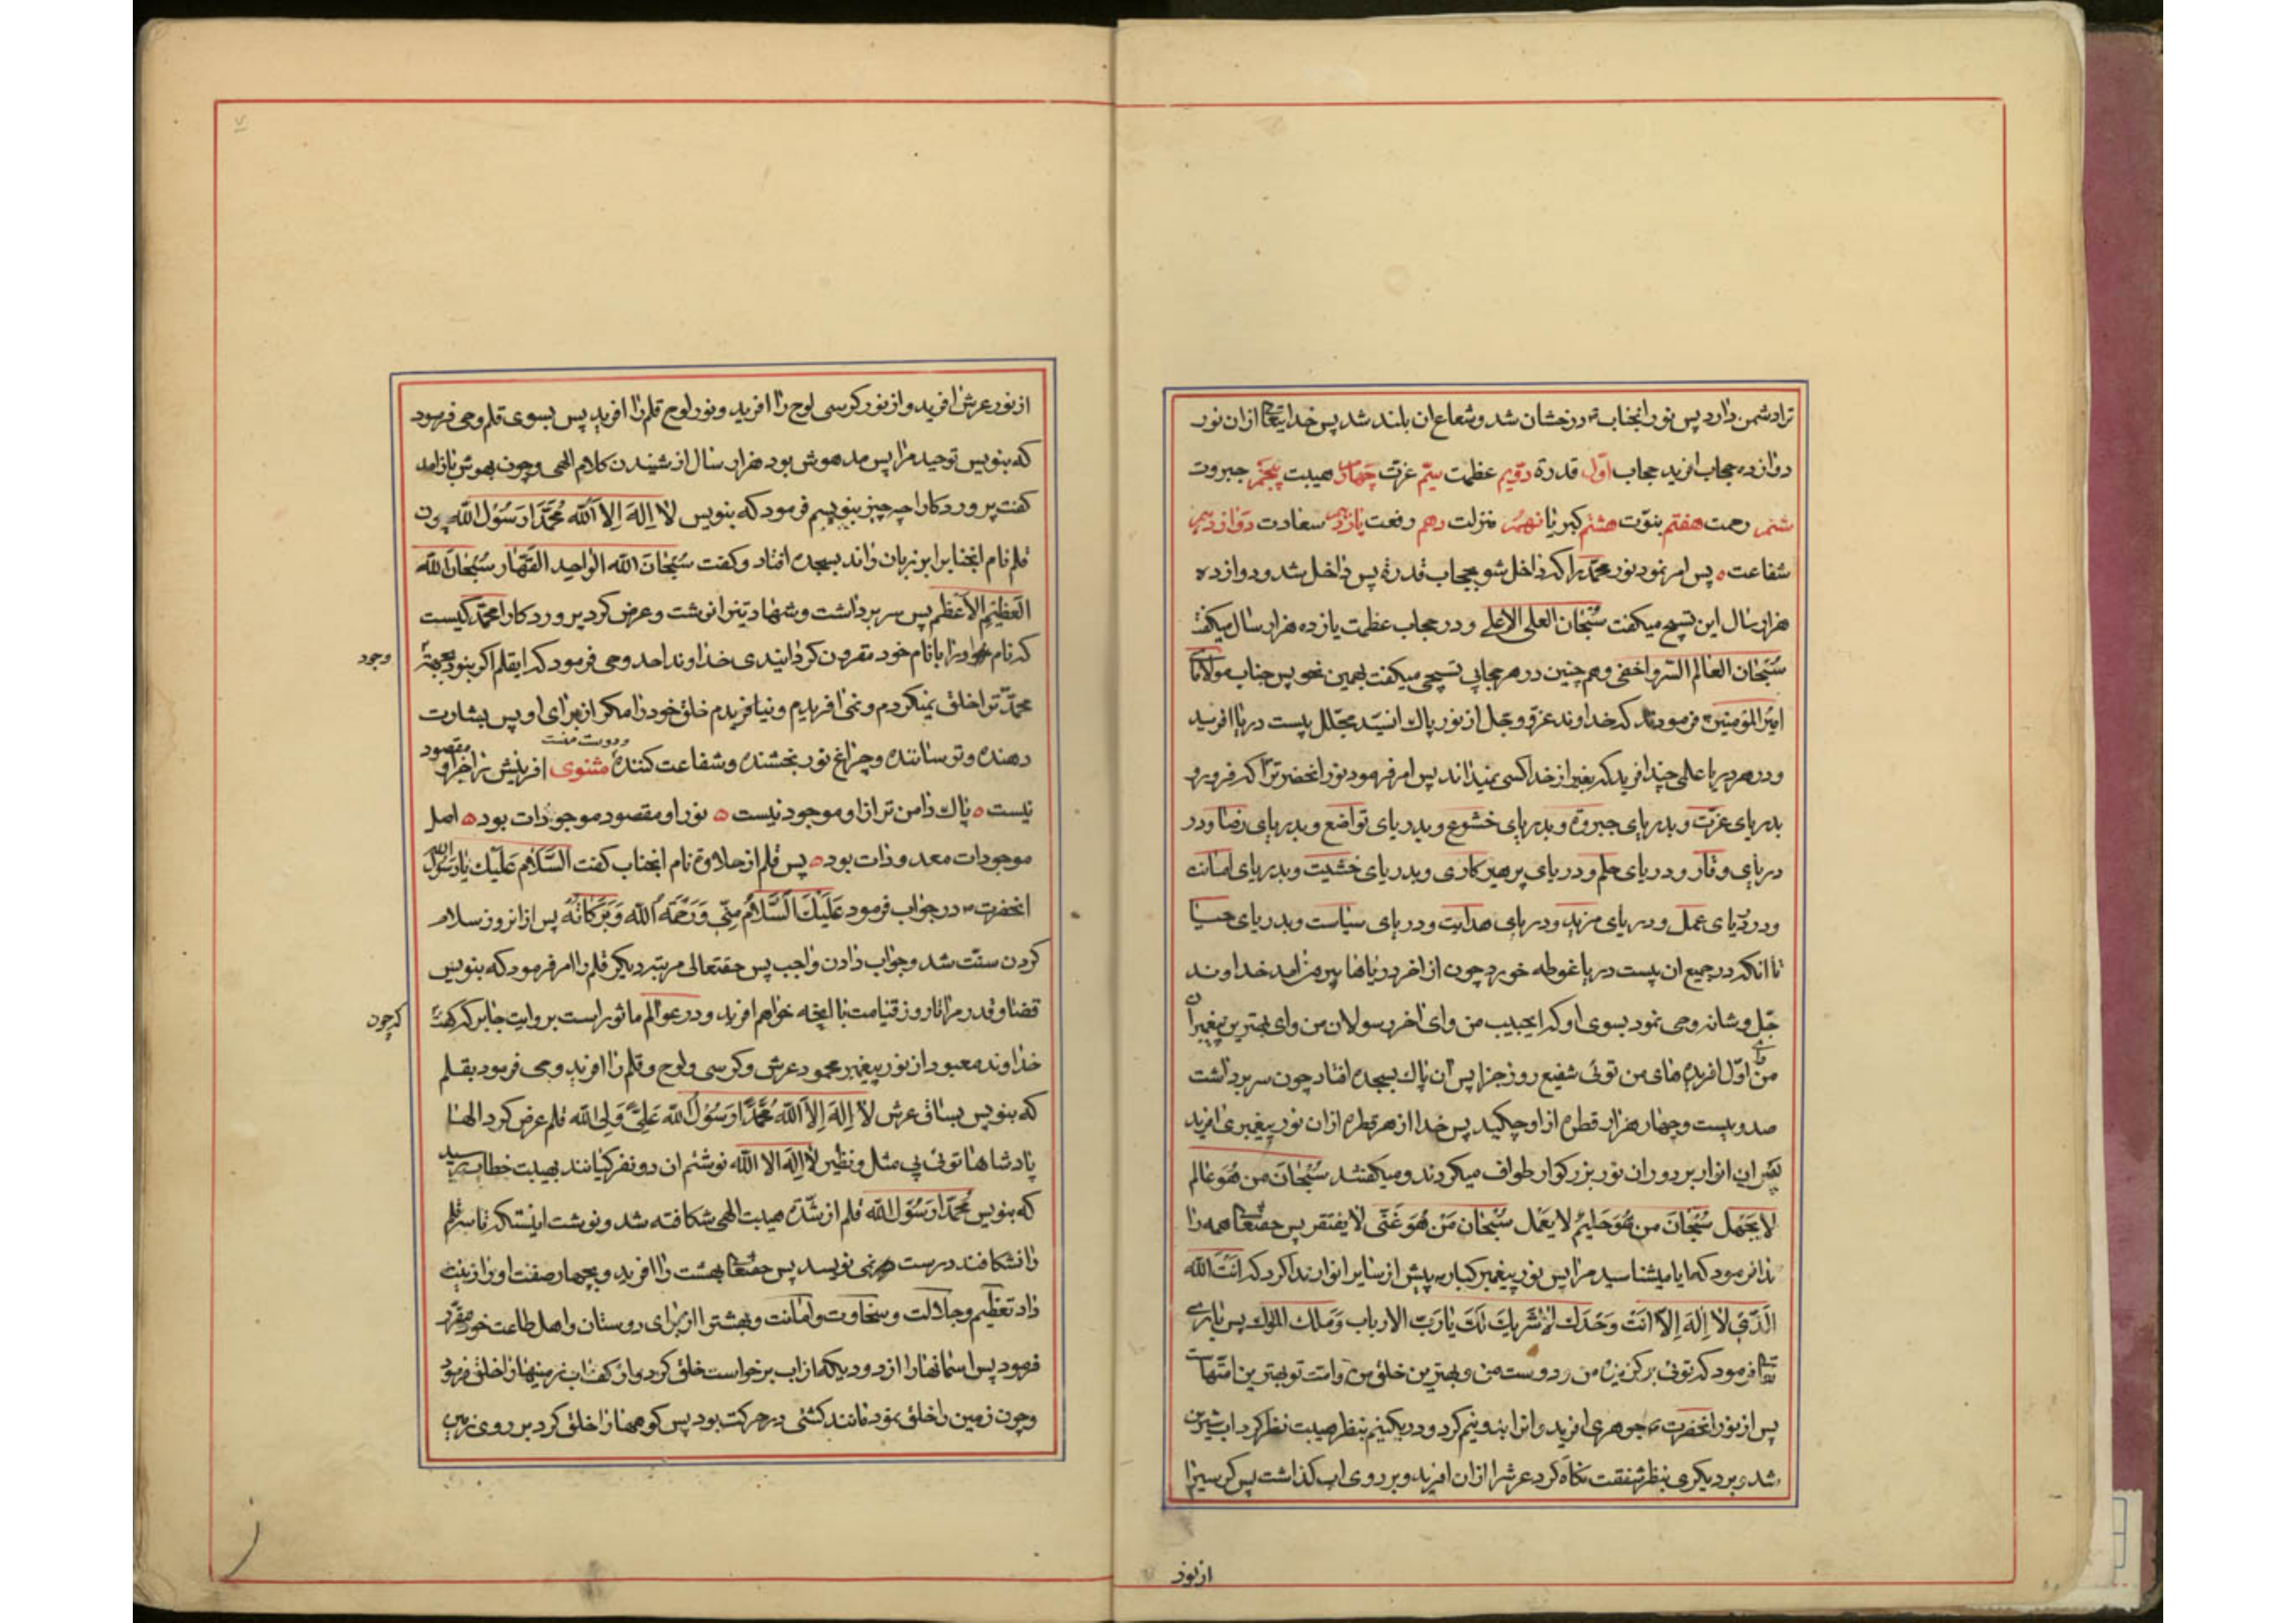 ترا دشمن دارد پس نور انجناب درخشان شد و شعاع ان بلند شد پس خدایتعالی ازان نور
دوازده حجاب افرید حجاب اول قدرة دویم عظمت سیم عزت چهارم هیبت پنجم جبروت
ششم رحمت هفتم نبوت هشتم کبریا نهم منزلت دهم رفعت یازدهم سعادت دوازدهم
شفاعت پس امر نمود نور محمد را که داخل شو بحجاب قدرة پس داخل شد و دوازده
هزار سال این تسبیح میکفت سُبْحٰان العلی الاعلی و در حجاب عظمت یازده هزار سال میکفت
سُبْحٰان العٰالم السّر و اخفی و هم چنین در هر حجابی تسبیحی میکفت بهمین نحو پس جناب مولانا
امیر المؤمنین فرمود که خداوند عزّ و جل از نور پاك ان سیّد مجلل بیست دریا افرید
و در هر دریا علمی چند افرید که بغیر از خدا کسی نمیداند پس امر فرمود نور انحضرترا که فرو رو
بدریای عزّت و بدریای جبروة و بدریای خشوع و بدریای تواضع و بدریای رضا و در
دریای وقار و دریای حلم و دریای پرهیزکاری و بدریای خشیت و بدریای امانت
و دریای عمل و دریای مزید و دریای هدایت و دریای سیاست و بدریای حیا
تا انکه در جمیع ان بیست دریا غوطه خورد چون از اخر دریاها بیرون امد خداوند
جلّ و شانه وحی نمود بسوی او که ایحبیب من و ای اخر رسولان من و ای بهترین پیغمبران
من و ای اوّل افریده های من توئی شفیع روز جزا پس ان پاك بسجده افتاد چون سر برداشت
صد و بیست و چهار هزار قطره از او چکید پس خدا از هر قطره ازان نور پیغمبری افرید
پس ان انوار بر دور ان نور بزرکوار طواف میکردند و میکفتند سُبْحٰانَ من هُوَ عٰالم
لا یجهل سُبْحٰانَ من هُوَ حَلیمٌ لا یعجل سُبْحٰان مَنْ هُوَ غَنی لا یفتقر پس حقتعالی همه را
ندا فرمود که ایا میشناسید مرا پس نور پیغمبر کبار پیش از سایر انوار ندا کرد که انت الله
الّذی لا إلٰه إلّا انت وَحْدَك لا شَریك لَكَ یٰا رَبّ الارباب وَ مَلك الملوك پس باری
تعالی فرمود که توئی برکزیدهٔ من و دوست من و بهترین خلق من و امت تو بهترین امتهاست
پس از نور انحضرت جوهری افرید و انرا بدو نیم کرد و در یکنیم بنظر هیبت نظر کرد اب شیرین
شد و بر دیکری بنظر شفقت نکاه کرد عرشرا ازان افرید و بر روی اب کذاشت پس کرسیرا
از نور
از نور عرش افرید و از نور کرسی لوح را افرید و نور لوح قلم را افرید پس بسوی قلم وحی فرمود
که بنویس توحید مرا پس مدهوش بود هزار سال از شنیدن کلام الهی و چون بهوش باز امد
کفت پروردکارا چه چیز بنویسم فرمود که بنویس لا إلٰهَ إلّا اللّٰه مُحَمّدًا رَسُوْل اللّٰه چون
قلم نام انجنابرا بر زبان راند بسجده افتاد و کفت سُبْحٰانَ اللّٰه الواحِد القَهّار سُبْحٰانَ اللّٰه
العَظیم الأعْظَم پس سر برداشت و شهادتینرا نوشت و عرض کرد پروردکارا محمّد کیست
که نام اورا با نام خود مقرون کردانیدی خداوند احد وحی فرمود که ایقلم اکر بنود بجهة
وجود
محمّد ترا خلق نمیکردم و نمی افریدم و نیافریدم خلق خود را مکر از برای او پس بشارت
دهنده و ترساننده و چراغ نور بخشنده و شفاعت کننده و دوست منست مثنوی افرینش را جز او مقصود
نیست پاك دامن تر از او موجود نیست نور او مقصود موجودات بود اصل
موجودات معدودات بود پس قلم از حلاوة نام انجناب کفت السَّلٰام عَلَیْك یٰا رَسُوْل اللّٰه
انحضرت در جواب فرمود عَلَیْكَ السَّلٰامُ مِنّی وَ رَحْمَةُ اللّٰه وَ بَرَکٰاتُهُ پس از انروز سلام
کردن سنّت شد و جواب دادن واجب پس حقتعالی مرتبه دیکر قلم را امر فرمود که بنویس
قضا و قدر مرا تا روز قیامت با انچه خواهم افرید و در عوالم ماثور است بروایت جابر که کفت
که چون
خداوند معبود از نور پیغمبر محمود عرش و کرسی و لوح و قلم را افرید وحی فرمود بقلم
که بنویس بساق عرش لا إلٰهَ إلّا اللّٰه مُحَمَّدًا رَسُوْلُ اللّٰه عَلِیّ وَلیّ اللّٰه قلم عرض کرد الها
پادشاها توئی بی مثل و نظیر لا إلٰه الا اللّٰه نوشتم ان دو نفر کیانند بهیبت خطاب رسید
که بنویس مُحَمّدًا رَسُوْل اللّٰه قلم از شدّة هیبت الهی شکافته شد و نوشت اینستکه تا سر قلم
را نشکافند درست نمی نویسد پس حقتعالی بهشت را افرید و بچهار صفت اورا زینت
داد تعظیم و جلالت و سخاوت و امانت و بهشترا از برای دوستان و اهل طاعت خود مقرّر
فرمود پس اسمانهارا از دودیکه از اب برخواست خلق کرد و از کف اب زمینهارا خلق فرمود
و چون زمین را خلق نمود مانند کشتی در حرکت بود پس کوههارا خلق کرد بر روی زمین